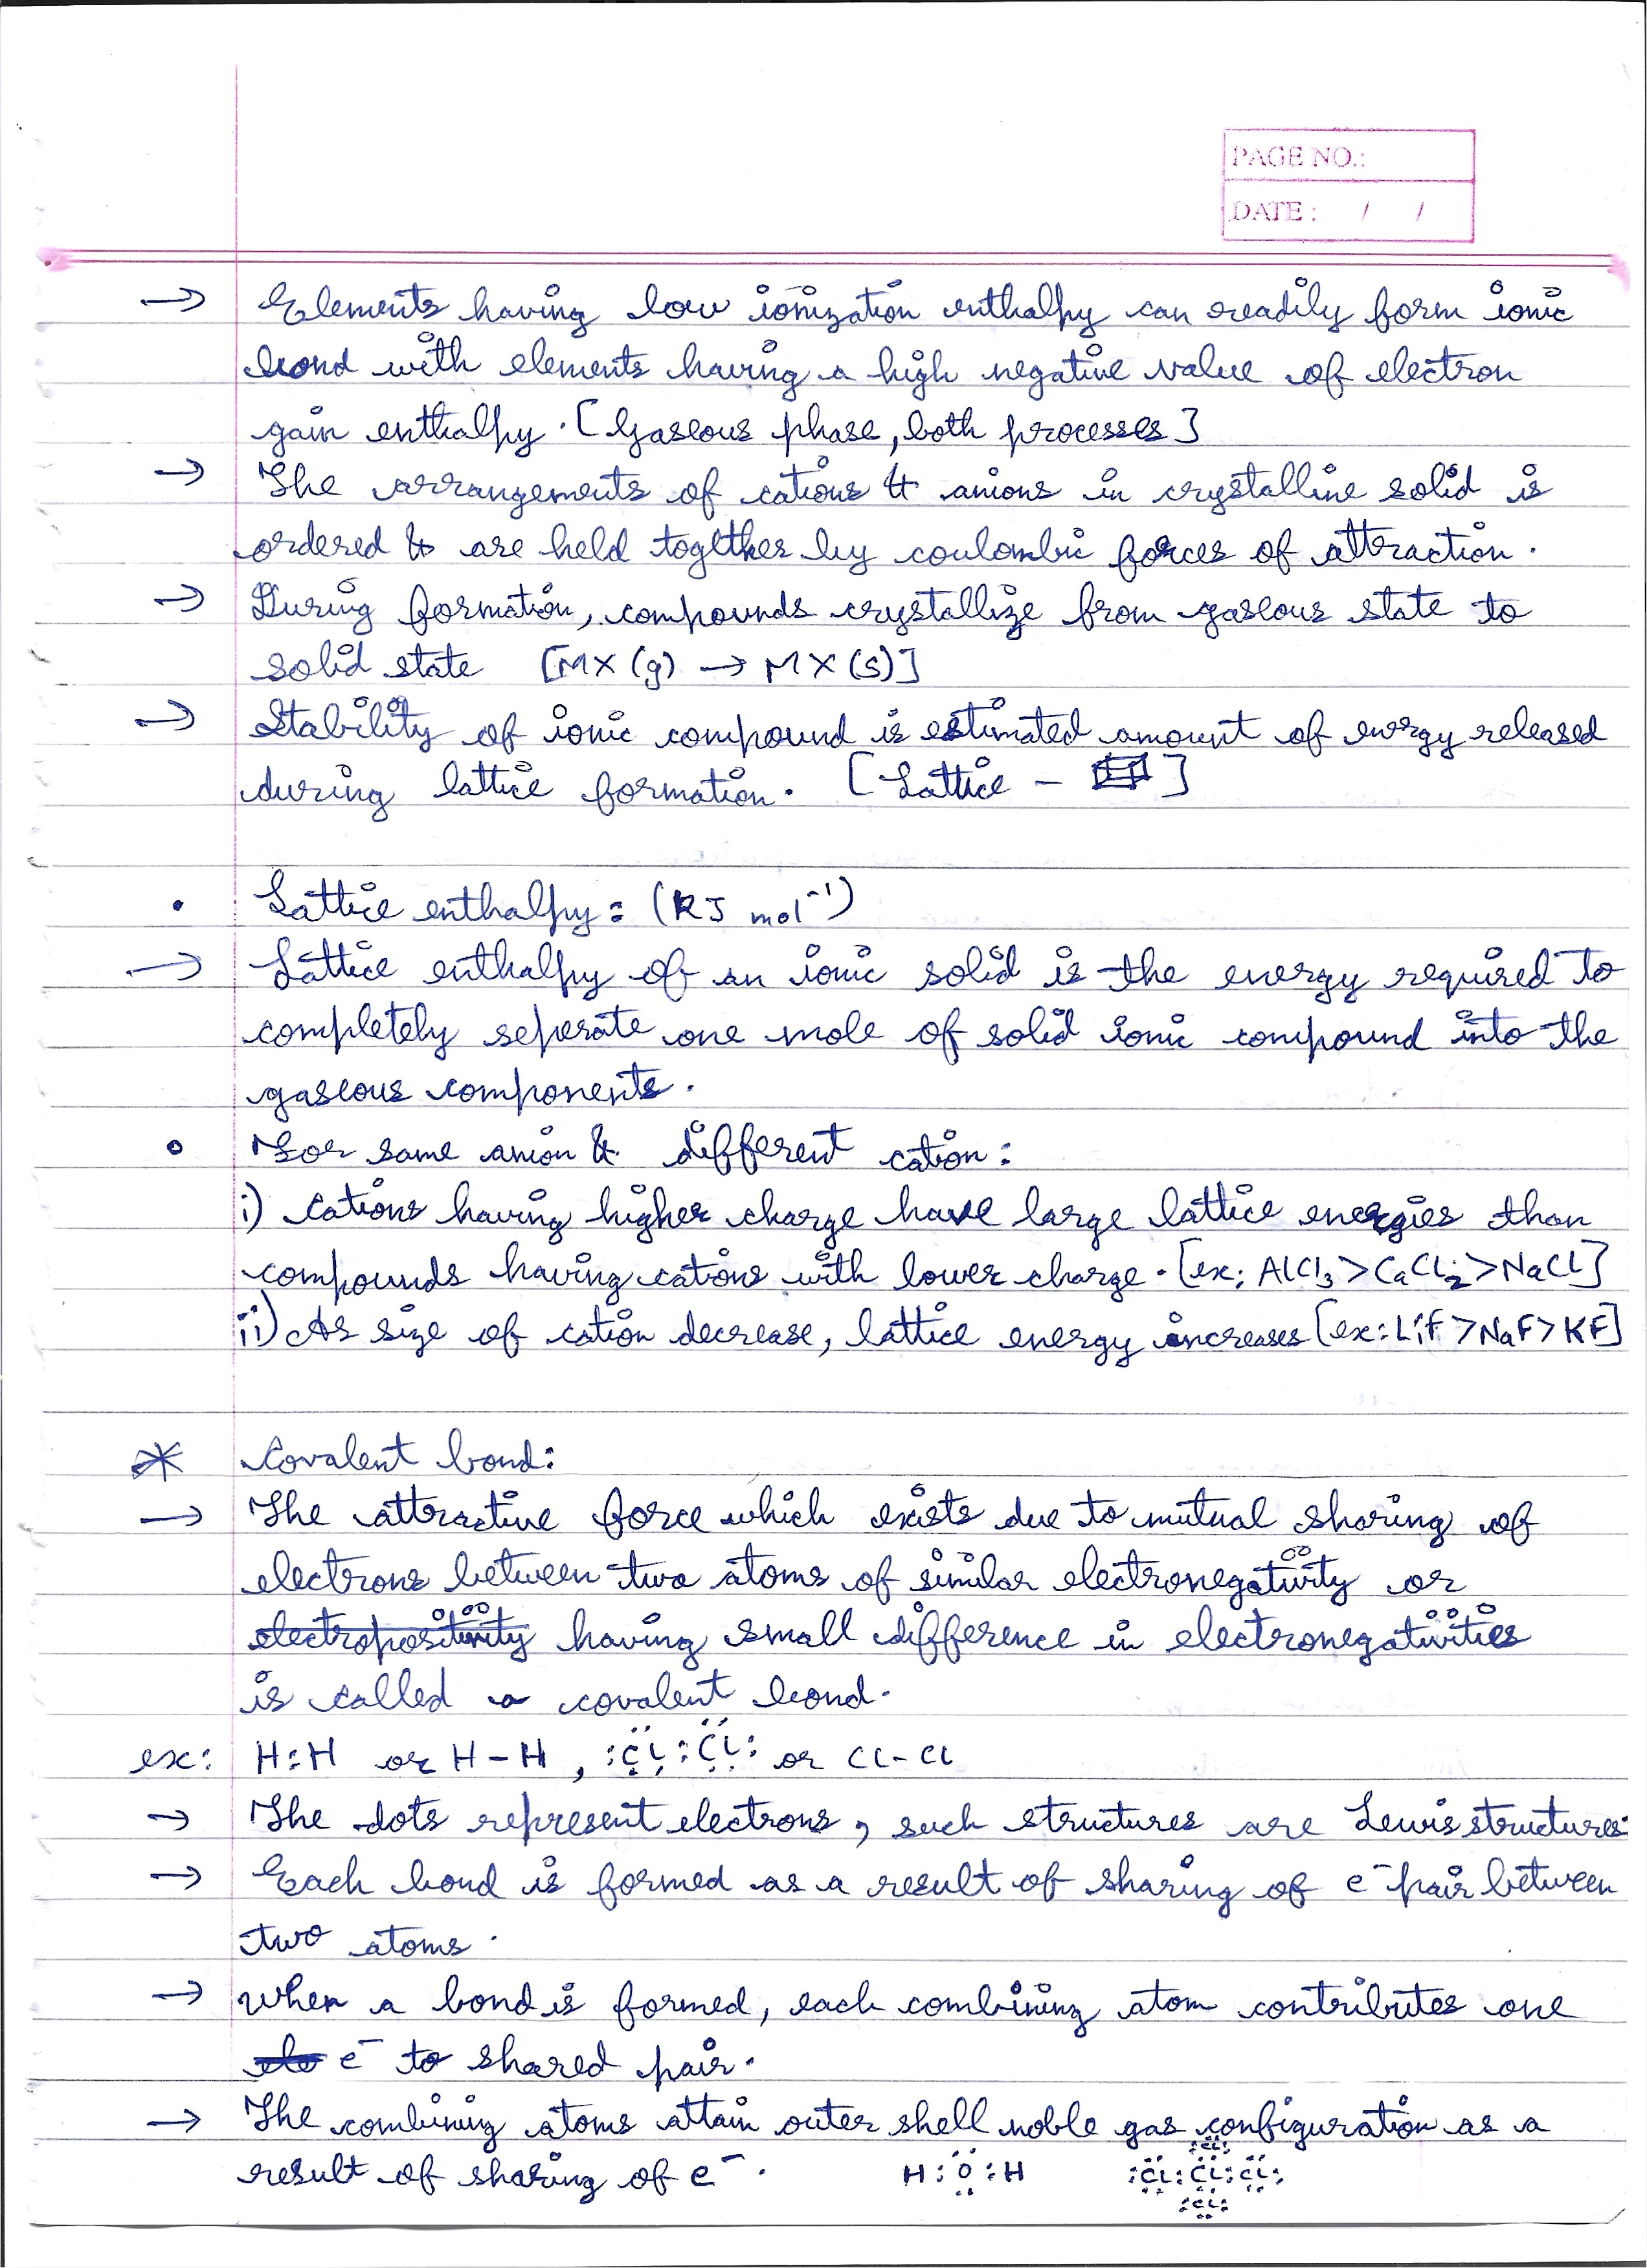 PAGE NO.:
DATE : / /
→ Elements having low ionization enthalpy can readily form ionic
bond with elements having a high negative value of electron
gain enthalpy. [Gaseous phase, both processes]
→ The arrangements of cations & anions in crystalline solid is
ordered & are held together by coulombic forces of attraction.
→ During formation, compounds crystallize from gaseous state to
solid state [MX (g) → MX (s)]
→ Stability of ionic compound is estimated amount of energy released
during lattice formation. [Lattice - ]
• Lattice enthalpy: (KJ mol⁻¹)
→ Lattice enthalpy of an ionic solid is the energy required to
completely seperate one mole of solid ionic compound into the
gaseous components.
• For same anion & different cation:
i) Cations having higher charge have large lattice energies than
compounds having cations with lower charge. [ex; AlCl₃ > CaCl₂ > NaCl]
ii) As size of cation decrease, lattice energy increases [ex: LiF > NaF > KF]
* Covalent bond:
→ The attractive force which exists due to mutual sharing of
electrons between two atoms of similar electronegativity or
electropositivity having small difference in electronegativities
is called a covalent bond.
ex: H:H or H-H, :Cl:Cl: or Cl-Cl
→ The dots represent electrons, such structures are Lewis structures.
→ Each bond is formed as a result of sharing of e⁻ pair between
two atoms.
→ When a bond is formed, each combining atom contributes one
ele e⁻ to shared pair.
→ The combining atoms attain outer shell noble gas configuration as a
:Cl:
result of sharing of e⁻. H:O:H :Cl:Cl:Cl:
:Cl: